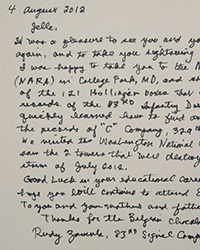 4 August 2012
Jelle,
It was a pleasure to see you and yo
again, and to take you sightseeing
I was happy to take you to the N
(NARA) in College Park, MD, and s
of the 121 Hollinger boxes that
records of the 83RD Infantry D
quickly learned how to find
the records of "C" Company, 329
We visited the Washington National
saw the 2 towers that were
storm of July 2012.
Good Luck in your educational caree
hope you will continue to attend
To you and your mother and fathe
Thanks for the Belgian Chocola
Rudy 83RD Signal Comp